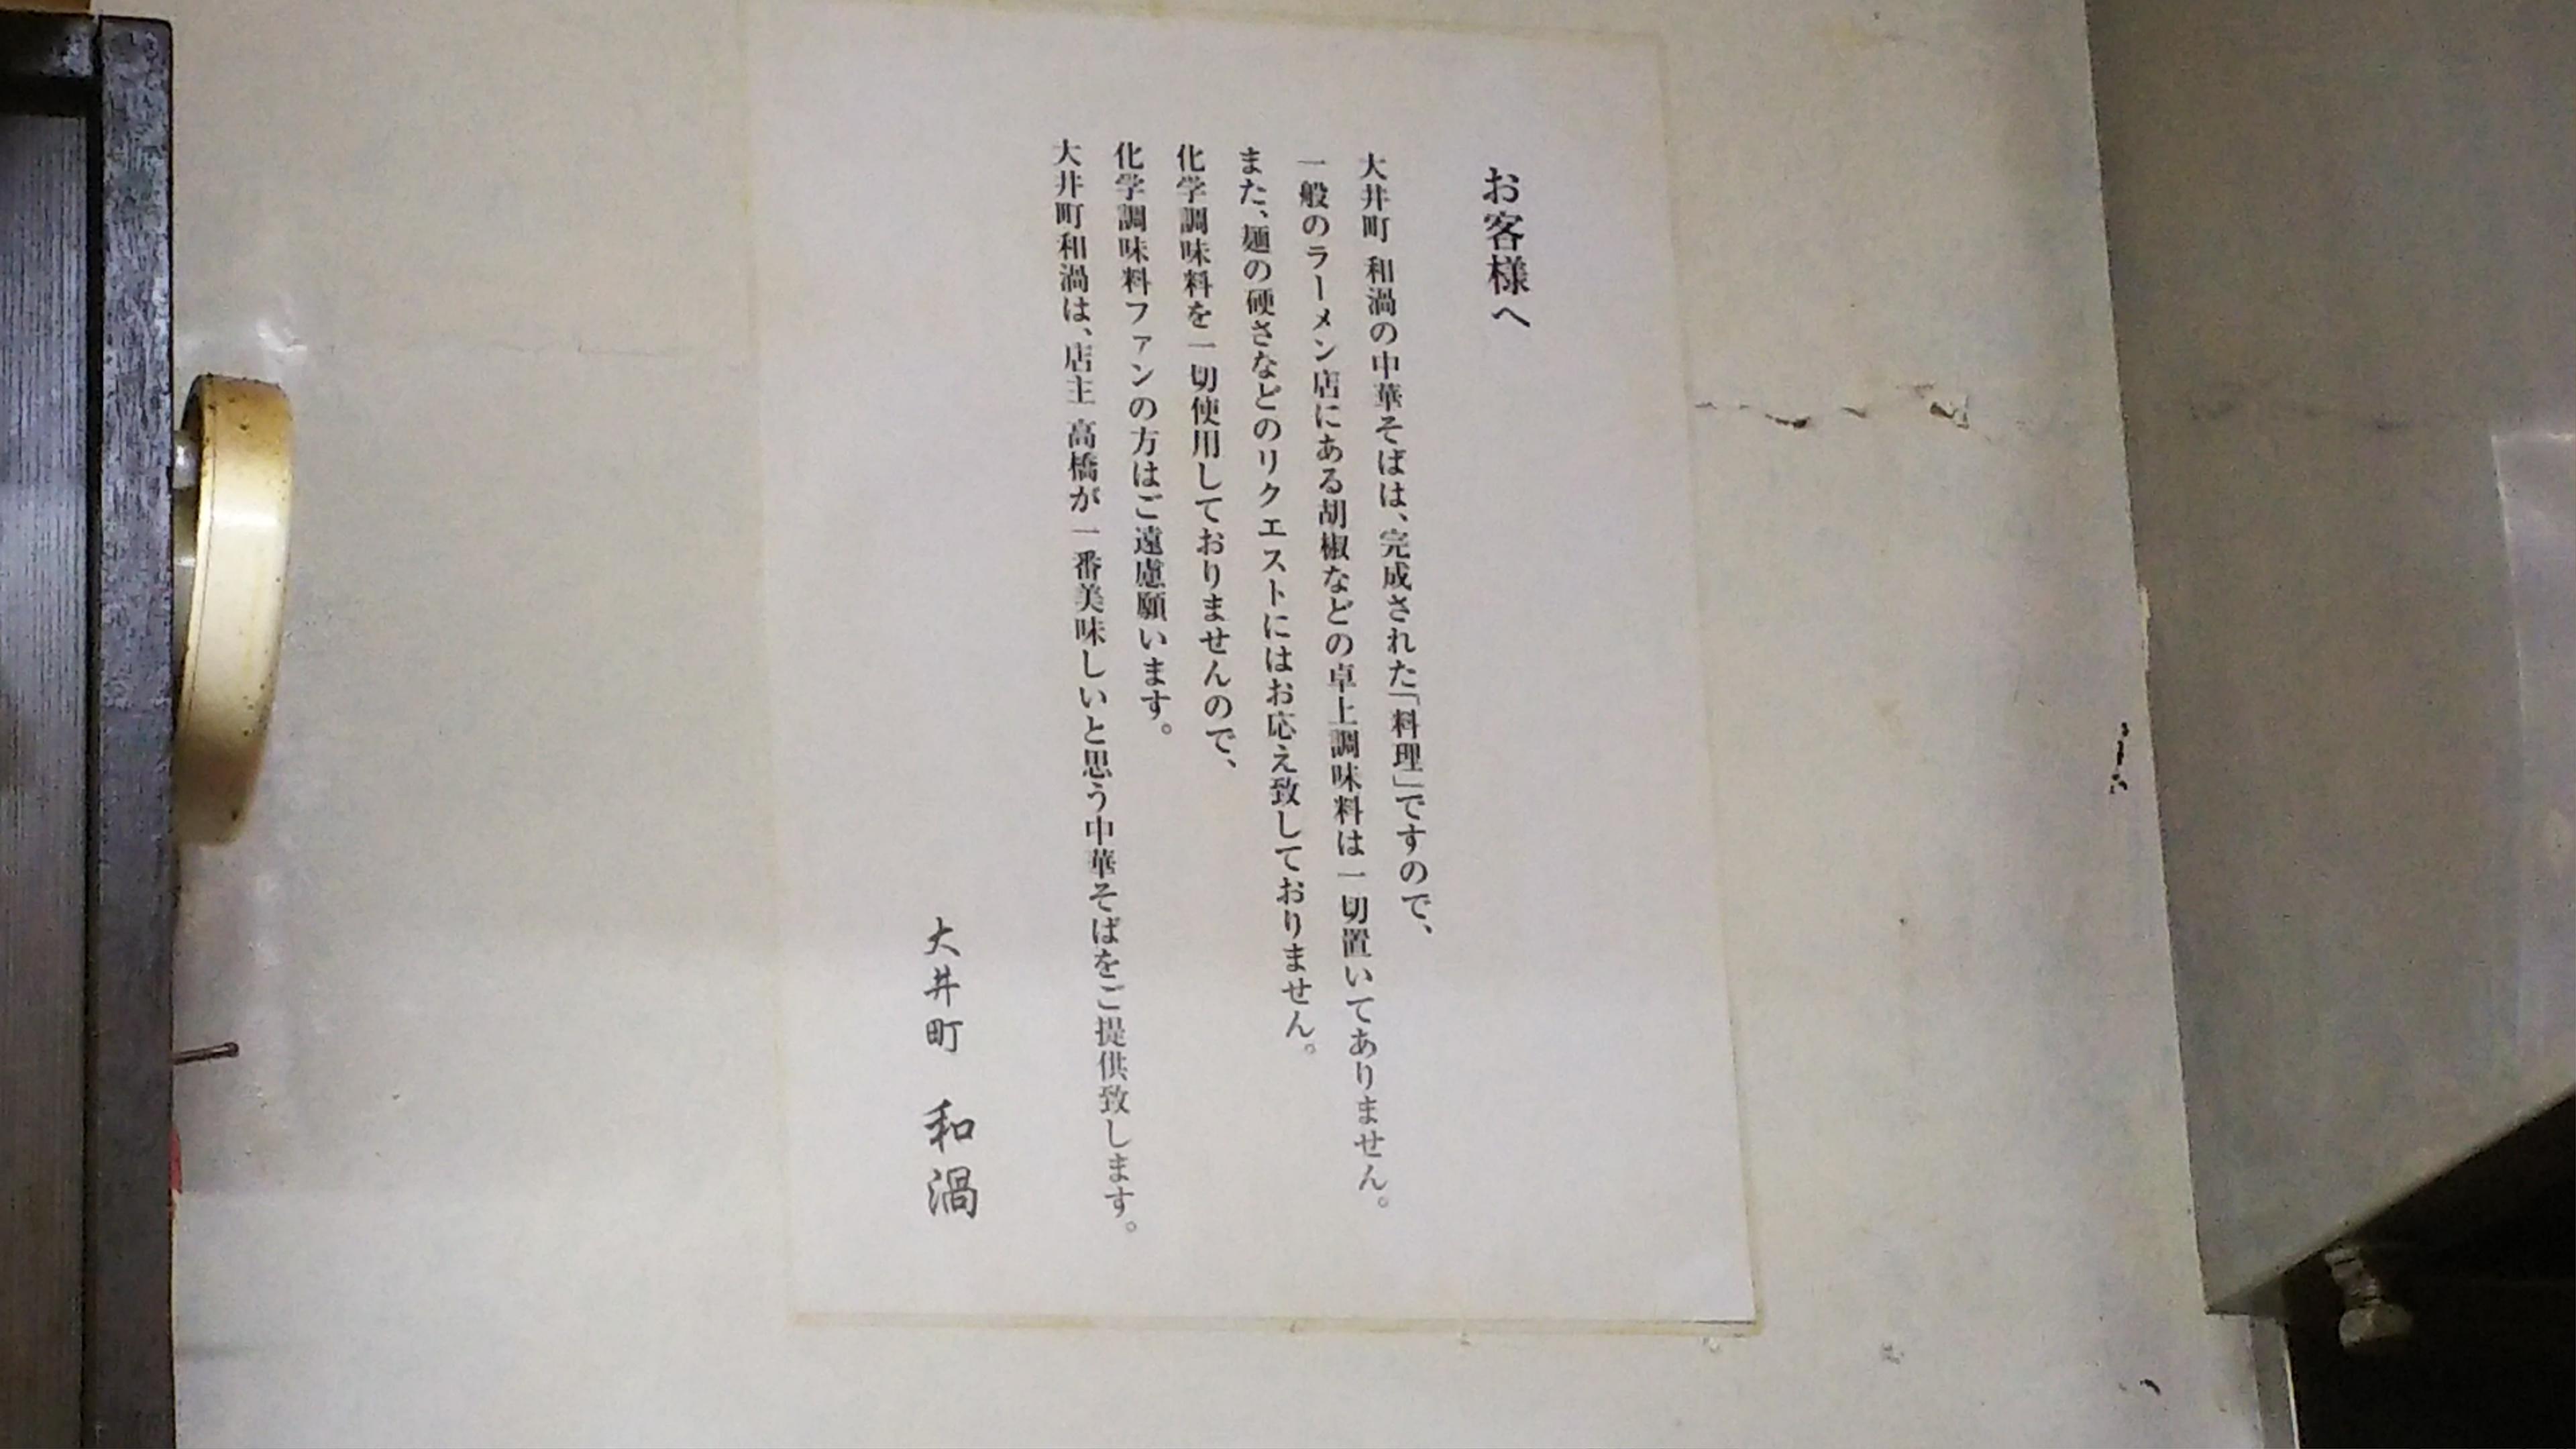 お客様へ
大井町 和渦の中華そばは、完成された「料理」ですので、
一般のラーメン店にある胡椒などの卓上調味料は一切置いてありません。
また、麺の硬さなどのリクエストにはお応え致しておりません。
化学調味料を一切使用しておりませんので、
化学調味料ファンの方はご遠慮願います。
大井町和渦は、店主 高橋が一番美味しいと思う中華そばをご提供致します。
大井町 和渦